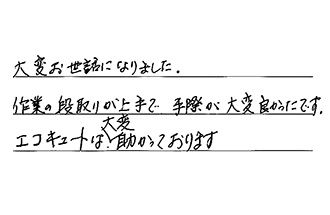 大変お世話になりました。
作業の段取りが上手で 手際が大変良かったです。
エコキュートは、大変助かっております